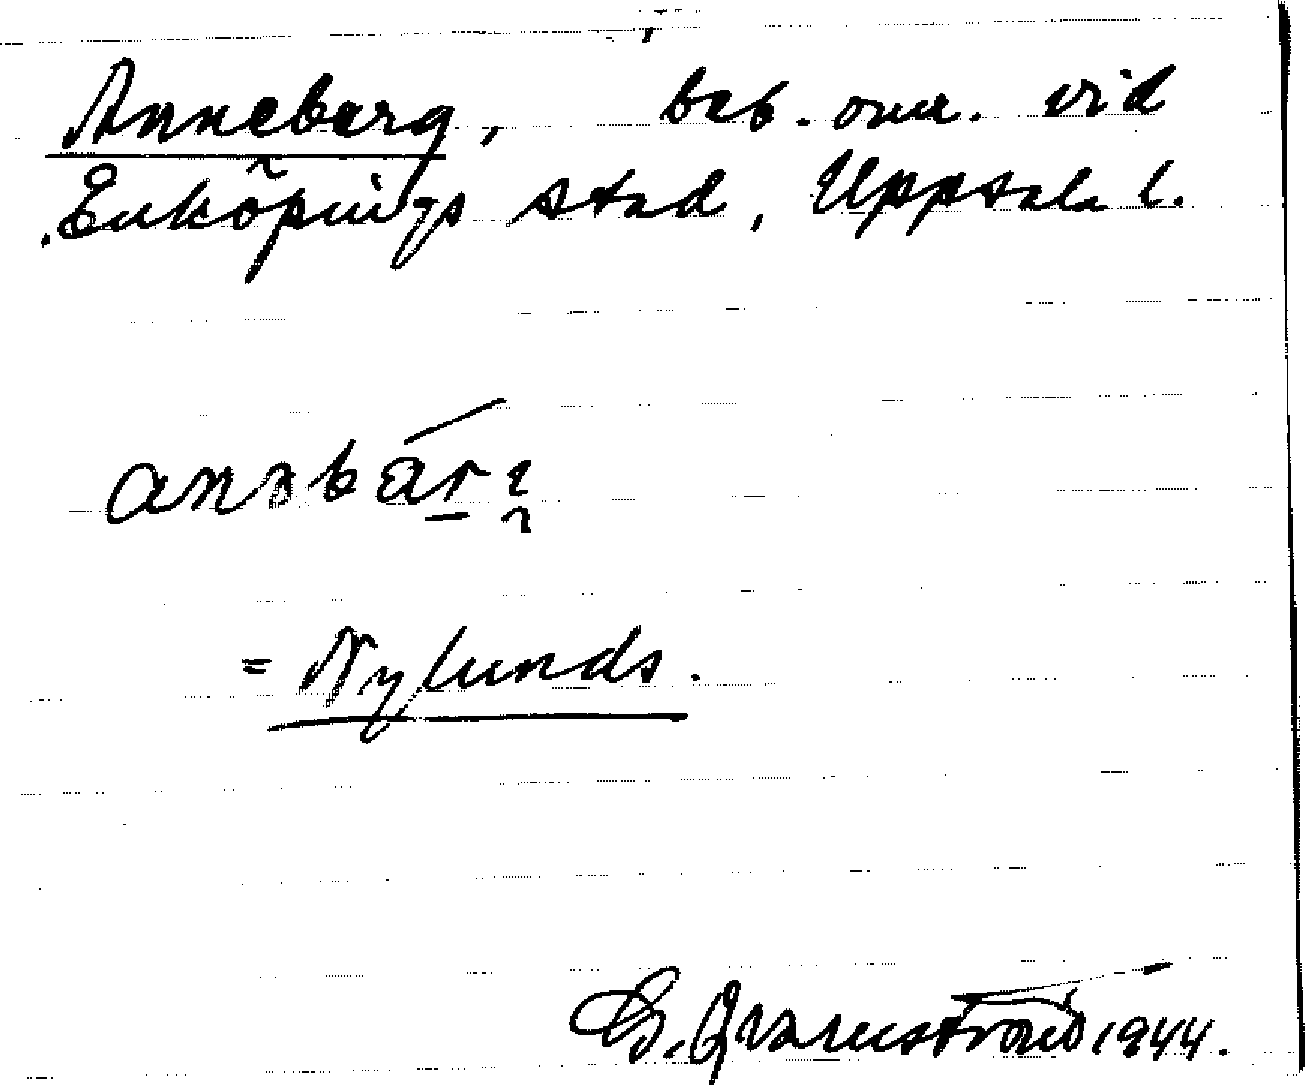 Anneberg, beb. omr. vid
Enköpings stad, Uppsala l.
anəbärị
= Nylunds.
G. Qvarnström 1944.